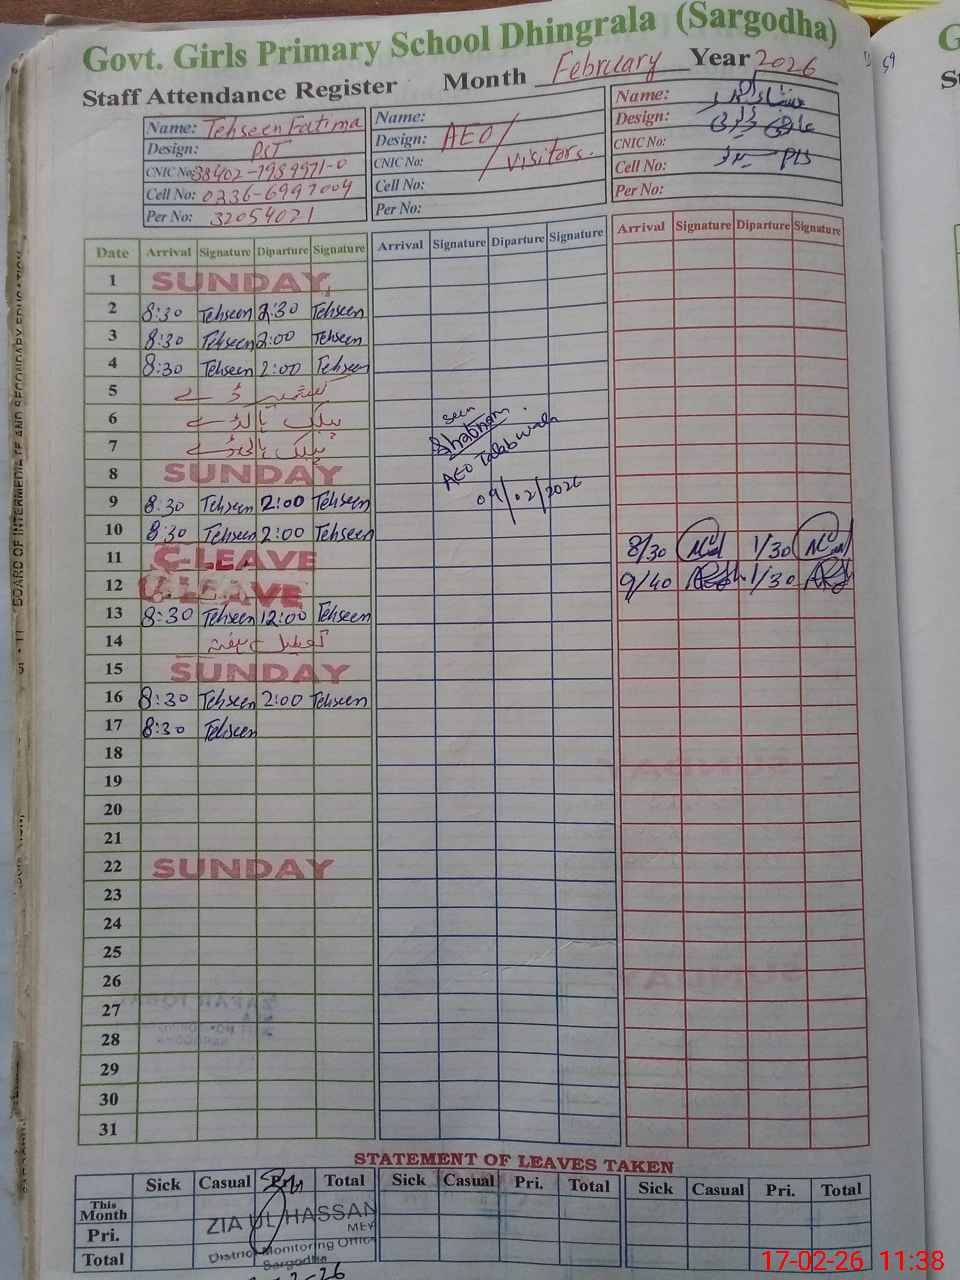 Govt. Girls Primary School Dhingrala (Sargodha)
Staff Attendance Register Month February Year 2026
Name: Tehseen Fatima
Design: PST
CNIC No: 38402-7989971-0
Cell No: 0236-6997004
Per No: 32054021
Name:
Design: AEO/
CNIC No: Visitors.
Cell No:
Per No:
Name:
Design:
CNIC No:
Cell No:
Per No:
Date Arrival Signature Diparture Signature Arrival Signature Diparture Signature Arrival Signature Diparture Signature
1 SUNDAY
2 8:30 Tehseen 2:30 Tehseen
3 8:30 Tehseen 2:00 Tehseen
4 8:30 Tehseen 2:00 Tehseen
5 کشمیر ڈے
6 seen
7 Shabnam
8 SUNDAY AEO Talabwala
9 8:30 Tehseen 2:00 Tehseen 09/02/2026
10 8:30 Tehseen 2:00 Tehseen 8/30 1/30
11 C-LEAVE 9/40 1/30
12 LEAVE
13 8:30 Tehseen 12:00 Tehseen
14
15 SUNDAY
16 8:30 Tehseen 2:00 Tehseen
17 8:30 Tehseen
18
19
20
21
22 SUNDAY
23
24
25
26
27
28
29
30
31
STATEMENT OF LEAVES TAKEN
Sick Casual Total Sick Casual Pri. Total Sick Casual Pri. Total
This Month
Pri.
Total
ZIA UL HASSAN
MEA
District Monitoring Office
Sargodha
17-02-26 11:38